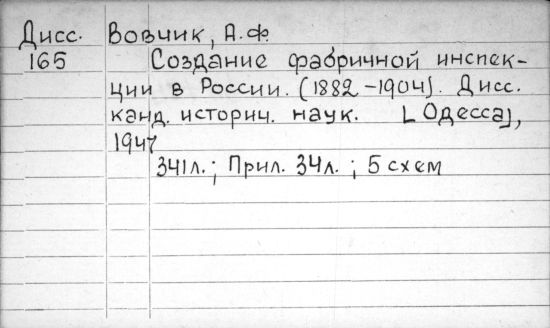 Дисс. Вовчик, А.Ф.
165 Создание фабричной инспек-
ции в России. (1882-1904). Дисс.
канд. историч. наук. [Одесса],
1947
341л.; Прил. 34л.; 5 схем